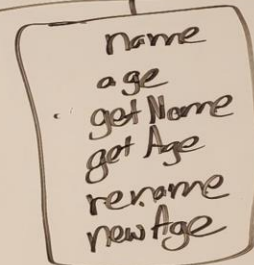 name
age
getName
getAge
rename
newAge